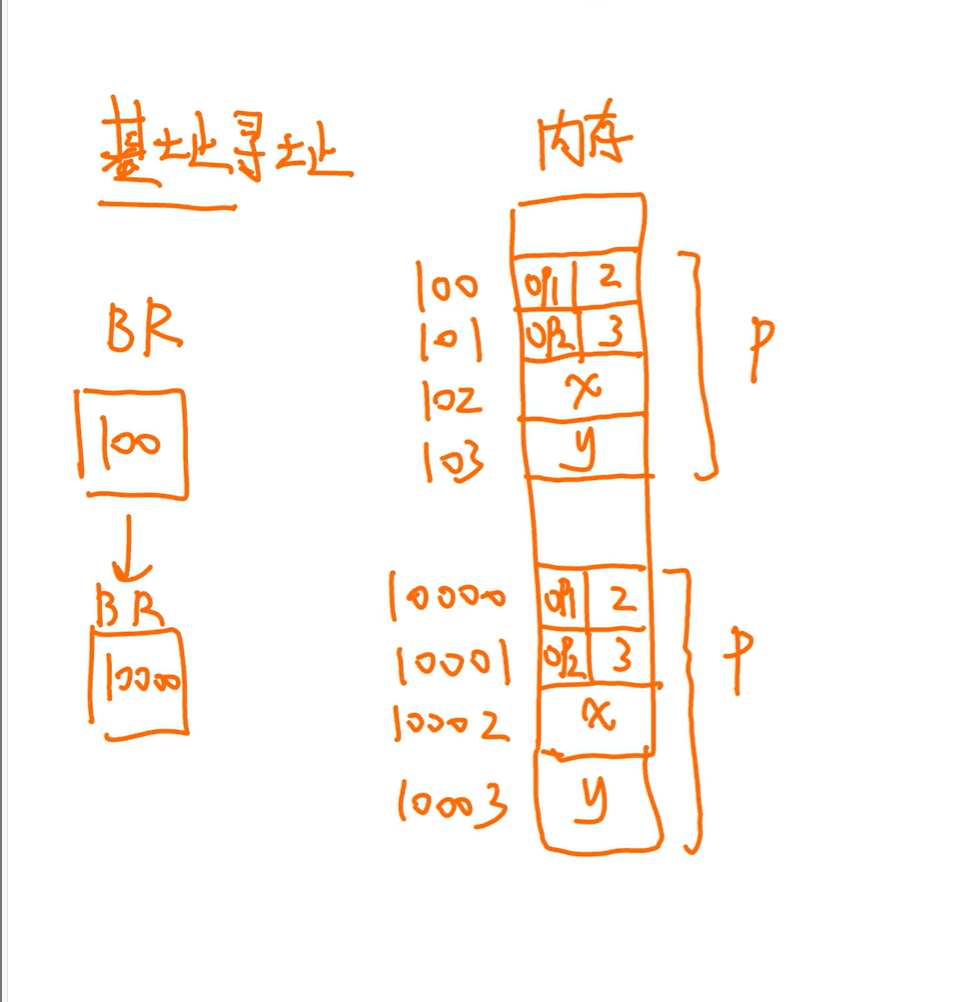 基址寻址
内存
BR
100
BR
10000
100 OP1 2
101 OP2 3
102 x
103 y
P
10000 OP1 2
10001 OP2 3
10002 x
10003 y
P